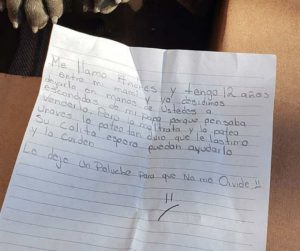 Me llamo Andres y tengo 12 años
entre mi mamá y yo decidimos
dejarla en manos de Ustedes a
escondidas de mi papa porque pensaba
venderlo. Pero lo maltrata y lo patea
unaves lo pateo tan duro que le lastimo
su Colita espero puedan ayudarlo
y lo cuiden
Le deje un Peluche para que No me Olvide !!